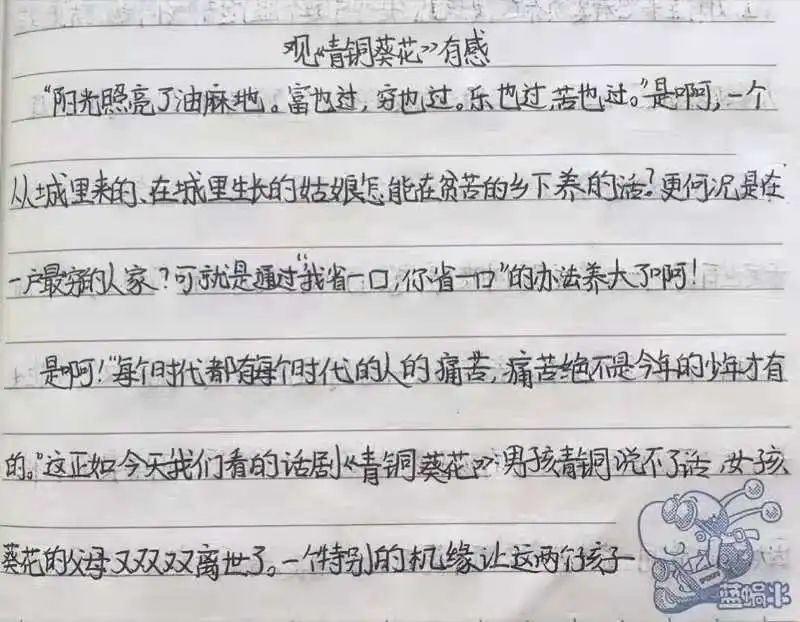 观《青铜葵花》有感
“阳光照亮了油麻地。富也过,穷也过。乐也过,苦也过。”是啊,一个
从城里来的、在城里生长的姑娘怎能在贫苦的乡下养的活?更何况是在
一户最穷的人家?可就是通过“我省一口,你省一口”的办法养大了啊!
是啊!“每个时代都有每个时代的人的痛苦,痛苦绝不是今年的少年才有
的。”这正如今天我们看的话剧《青铜葵花》男孩青铜说不了话,女孩
葵花的父母又双双离世了。一个特别的机缘让这两个孩子
蓝蜗牛